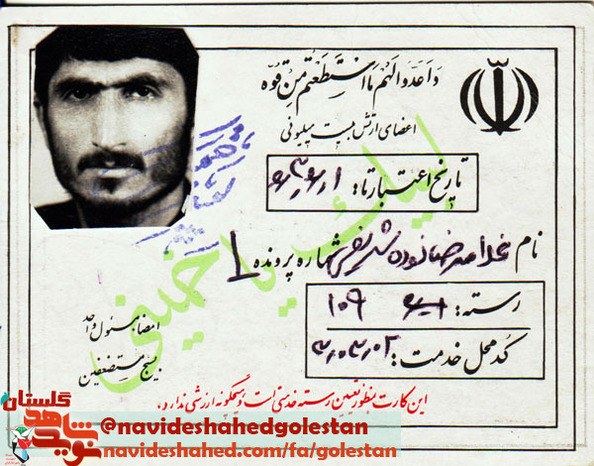 وَاَعِدّوالَهُم مااستَطَعتُم مِن قُوّه
اعضای ارتش بیست میلیونی
تاریخ اعتبار تا:
لبیک یا خمینی
نام غلامرضا نوده شریفی شماره پرونده 1
رسته: ۱۰۹
کد محل خدمت: ۳٫۰۳٫۰۲
امضا مسئول واحد
بسیج مستضعفین
این کارت بمنظور تعیین رسته خدمتی است و هیچگونه ارزشی ندارد.
گلستان
نوید شاهد
@navideshahedgolestan
navideshahed.com/fa/golestan